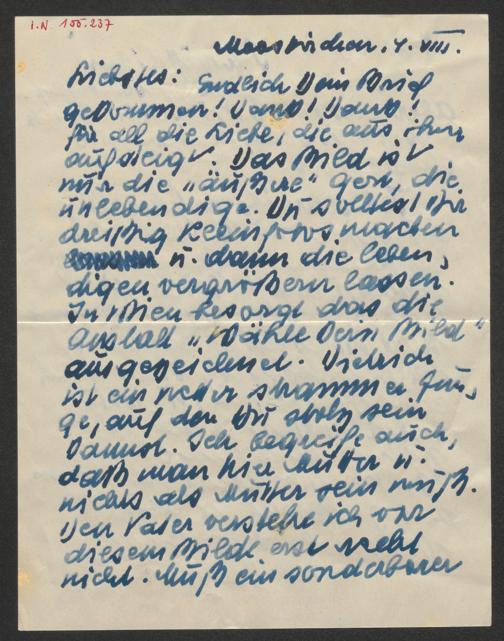 I.N. 155.237
Mooskirchen, 4. VIII.
Liebstes: Endlich Dein Brief
gekommen! Dank! Dank!
für all die Liebe, die aus ihm
aufsteigt. Das Bild ist
nur die „äußere“ Gert, die
unlebendige. Du solltest Dir
dreißig Kleinfotos machen
u. dann die leben,
digen vergrößern lassen.
In Wien besorgt das die
Anstalt „Wähle Dein Bild“
ausgezeichnet. Dietrich
ist ein netter strammer Jun,
ge, auf den Du stolz sein
kannst. Ich begreife auch,
daß man hier Mutter u.
nichts als Mutter sein muß.
Den Vater verstehe ich vor
diesem Bilde erst recht
nicht. Muß ein sonderbarer